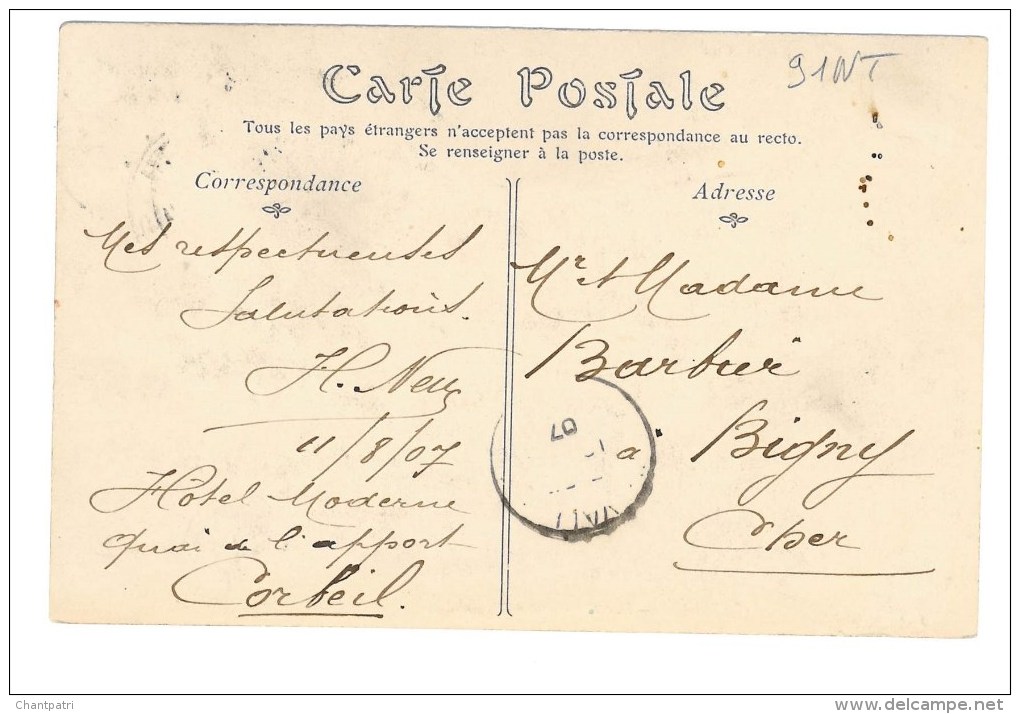 91NT
Carte Postale
Tous les pays étrangers n'acceptent pas la correspondance au recto.
Se renseigner à la poste.
Correspondance
Mes respectueuses
Salutations.
H. Neu
11/8/07
Hôtel Moderne
Quai de l'apport
Corbeil.
Adresse
Mr et Madame
Barbier
a Bigny
Cher
07
Chantpatri
www.delcampe.net